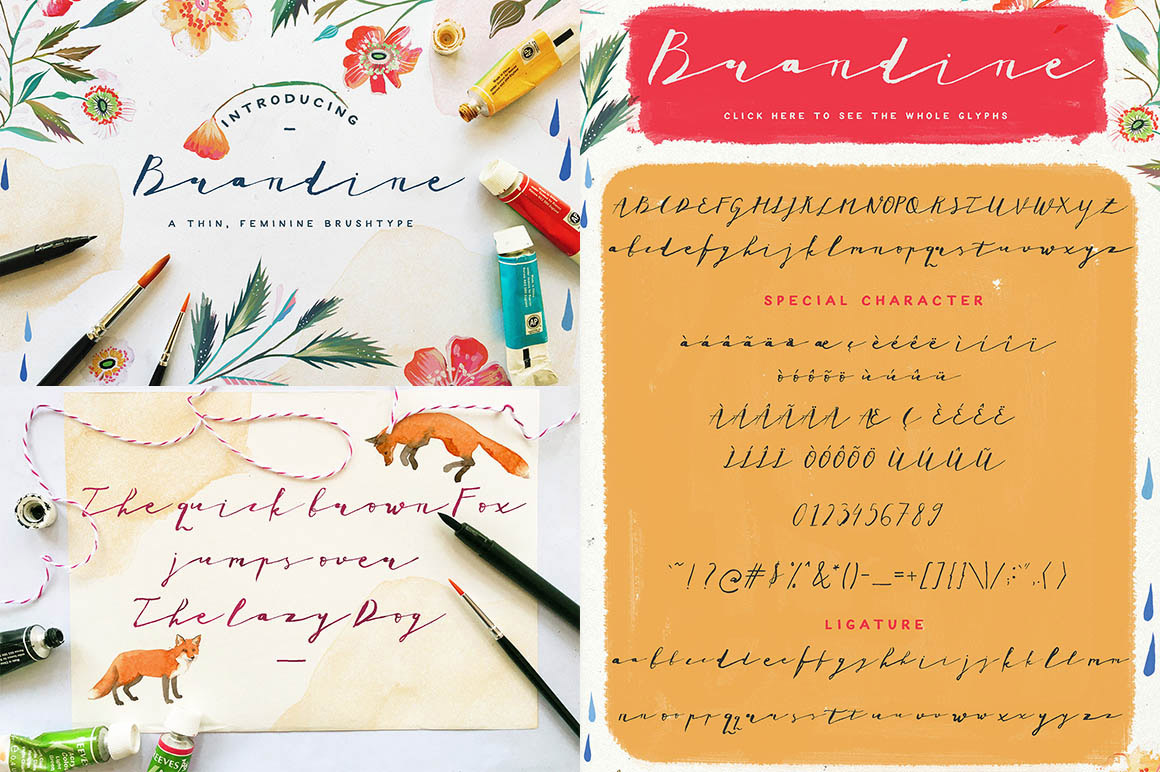 INTRODUCING
Brandine
A THIN, FEMININE BRUSHTYPE
The quick brown Fox
jumps over
The lazy Dog
Brandine
CLICK HERE TO SEE THE WHOLE GLYPHS
ABCDEFGHIJKLMNOPQRSTUVWXYZ
abcdefghijklmnopqrstuvwxyz
SPECIAL CHARACTER
àáâãäå æ ç èéêë ìíîï
òóôõö ùúûü
ÀÁÂÃÄÅ Æ Ç ÈÉÊË
ÌÍÎÏ ÒÓÔÕÖ ÙÚÛÜ
0123456789
`~!?@#$%^&*()-_=+[]{}\/:;"",.<>
LIGATURE
aabbccddeeffgghhiijjkkllmm
nnooppqqrrssttuuvvwwxxyyzz